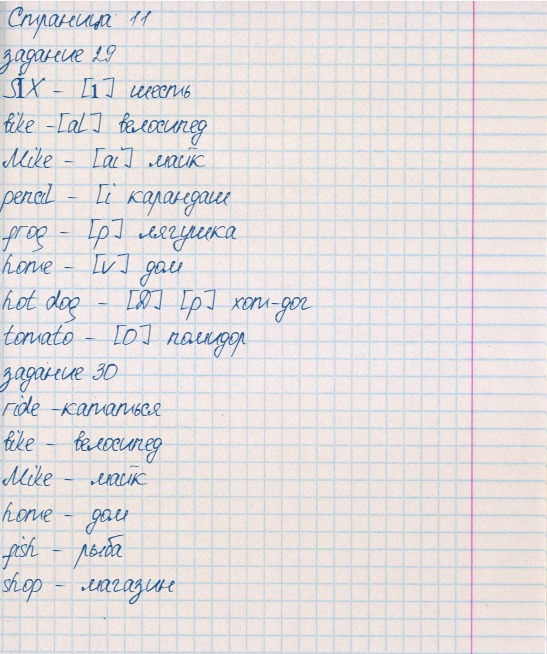 Страница 11
задание 29
SIX - [1] шесть
bike -[aL] велосипед
Mike - [ai] майк
pencil - [i карандаш
frog - [p] лягушка
home - [v] дом
hot dog - [D] [p] хот-дог
tomato - [O] помидор
задание 30
ride -кататься
bike - велосипед
Mike - майк
home - дом
fish - рыба
shop - магазин